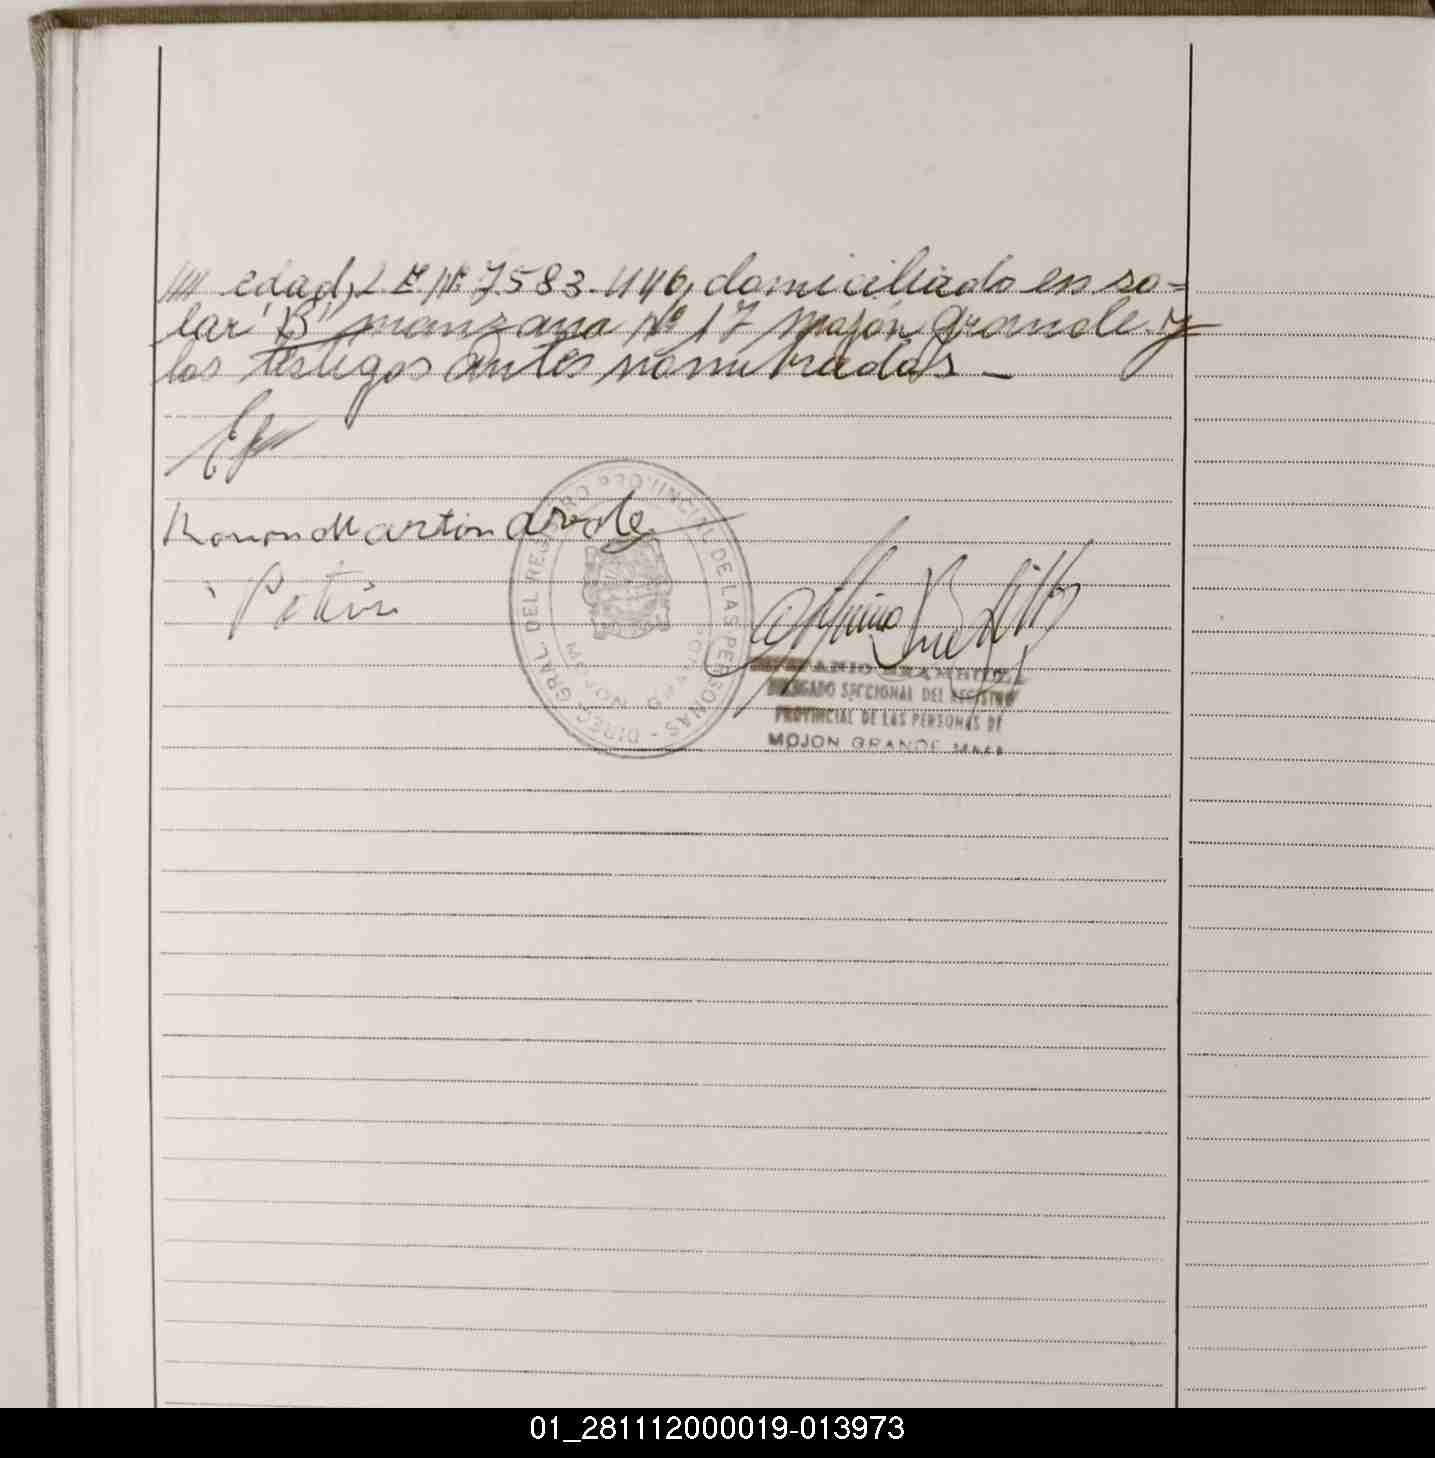 //// edad, L.E. Nº 7583.446, domiciliado en so=
lar "B" manzana Nº 17 Mojón Grande. y
los testigos antes nombrados. —
Ramon Martin
DIREC. GRAL. DEL REGISTRO PROVINCIAL DE LAS PERSONAS -
DELEGADO SECCIONAL DEL REGISTRO
PROVINCIAL DE LAS PERSONAS DE
MOJON GRANDE
01_281112000019-013973